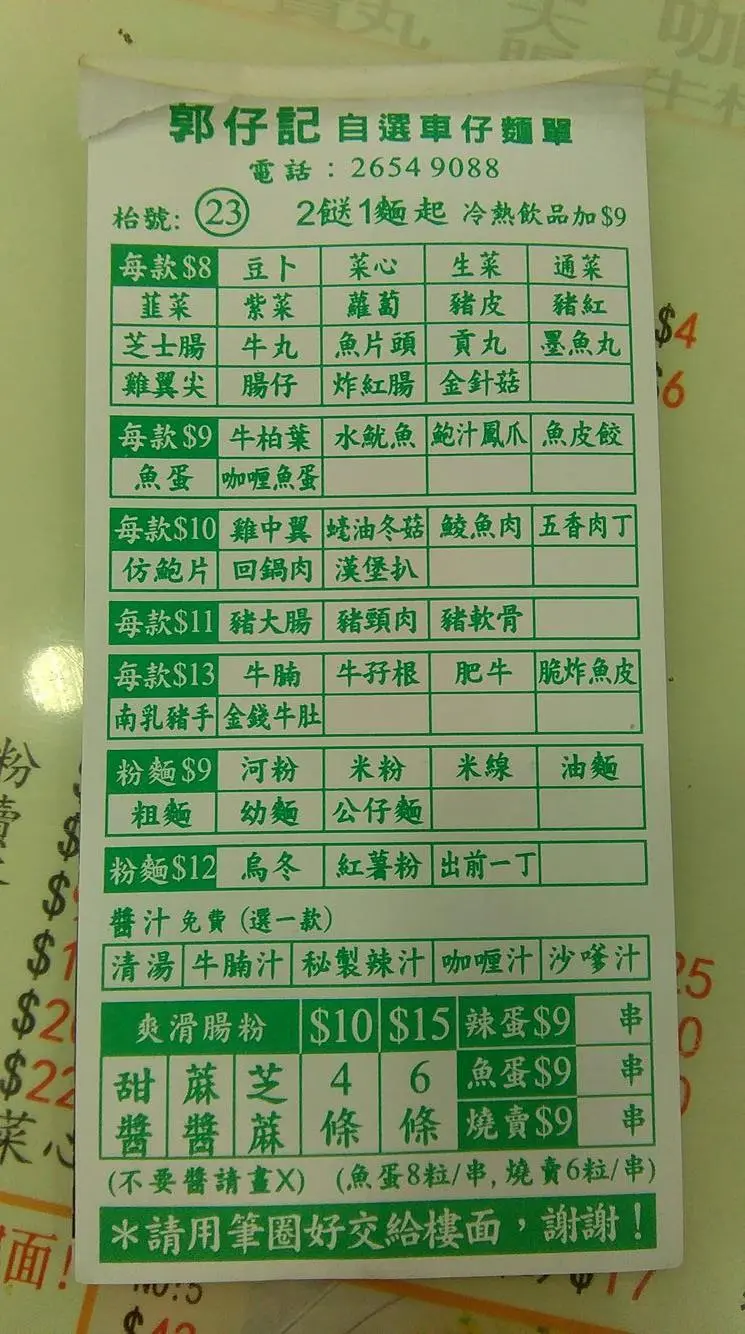 郭仔記 自選車仔麵單
電話：2654 9088
枱號: 23 2餸1麵起 冷熱飲品加$9
每款$8 豆卜 菜心 生菜 通菜
韮菜 紫菜 蘿蔔 豬皮 豬紅
芝士腸 牛丸 魚片頭 貢丸 墨魚丸
雞翼尖 腸仔 炸紅腸 金針菇
每款$9 牛柏葉 水魷魚 鮑汁鳳爪 魚皮餃
魚蛋 咖喱魚蛋
每款$10 雞中翼 蠔油冬菇 鯪魚肉 五香肉丁
仿鮑片 回鍋肉 漢堡扒
每款$11 豬大腸 豬頸肉 豬軟骨
每款$13 牛腩 牛孖根 肥牛 脆炸魚皮
南乳豬手 金錢牛肚
粉麵$9 河粉 米粉 米線 油麵
粗麵 幼麵 公仔麵
粉麵$12 烏冬 紅薯粉 出前一丁
醬汁免費 (選一款)
清湯 牛腩汁 秘製辣汁 咖喱汁 沙嗲汁
爽滑腸粉 $10 $15 辣蛋$9 串
甜醬 蔴醬 芝蔴 4條 6條 魚蛋$9 串
燒賣$9 串
(不要醬請畫X) (魚蛋8粒/串, 燒賣6粒/串)
*請用筆圈好交給樓面，謝謝！
$4
粉
菜心
面!
NO:5
$17